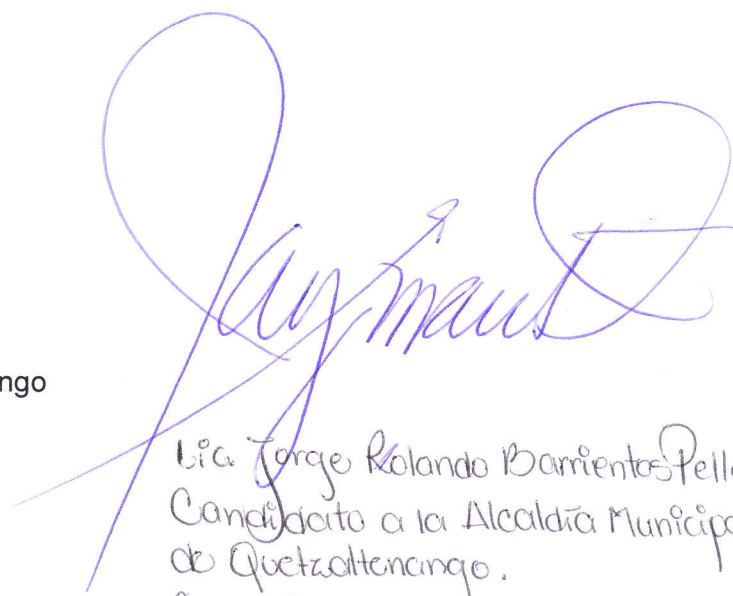 ngo
Lic. Jorge Rolando Barrientos Pelle
Candidato a la Alcaldía Municipa
de Quetzaltenango.